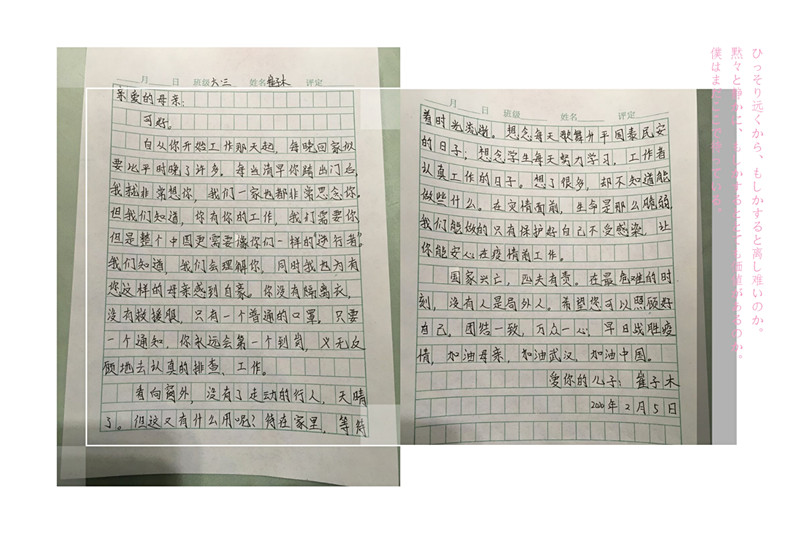 月 日 班级 六.三 姓名 崔子木 评定
亲爱的母亲:
可好。
自从你开始工作那天起,每晚回家似
要比平时晚了许多,每当清早你踏出门后,
我就非常想你,我们一家人都非常思念你。
但我们知道,你有你的工作,我们需要你
但是整个中国更需要像你们一样的“逆行者”
我们知道,我们会理解你,同时我也为有
您这样的母亲感到自豪。你没有隔离衣,
没有救援服,只有一个普通的口罩,只要
一个通知,你永远会第一个到岗,义无反
顾地去认真的排查、工作。
看向窗外,没有了走动的行人,天晴
了。但这又有什么用呢?待在家里,等待
着时光流逝。想念每天歌舞升平国泰民安
的日子;想念学生每天努力学习,工作者
认真工作的日子。想了很多,却不知道能
做些什么。在灾情面前,生命是那么脆弱,
我们能做的只有保护好自己不受感染,让
你能安心在疫情前工作。
国家兴亡,匹夫有责。在最危难的时
刻,没有人是局外人。希望您可以照顾好
自己。团结一致,万众一心,早日战胜疫
情,加油母亲,加油武汉,加油中国。
爱你的儿子:崔子木
2020年2月5日
月 日 班级 姓名 评定
ひっそり远くから、もしかすると离し难いのか。
黙々と静かに、もしかするととても価値があるのか。
僕はまだここで待っている。